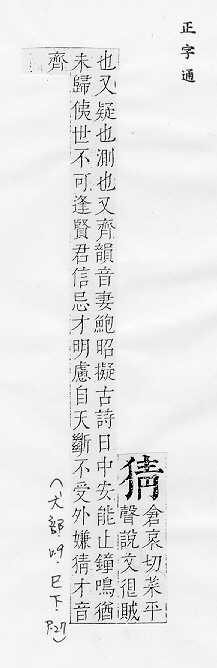 正字通
猜
倉哀切菜平
聲說文很賊
也又疑也測也又齊韻音妻鮑昭擬古詩日中安能止鐘鳴猶
未歸俟世不可逢賢君信忌才明慮自天斷不受外嫌猜才音
齊
(犬部.巳下.P.27)